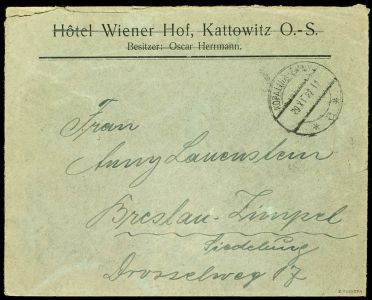 Hôtel Wiener Hof, Kattowitz O.-S.
Besitzer: Oscar Herrmann.
Frau
Anny Lauenstein
Breslau-Zimpel
Siedelung
Drosselweg 17